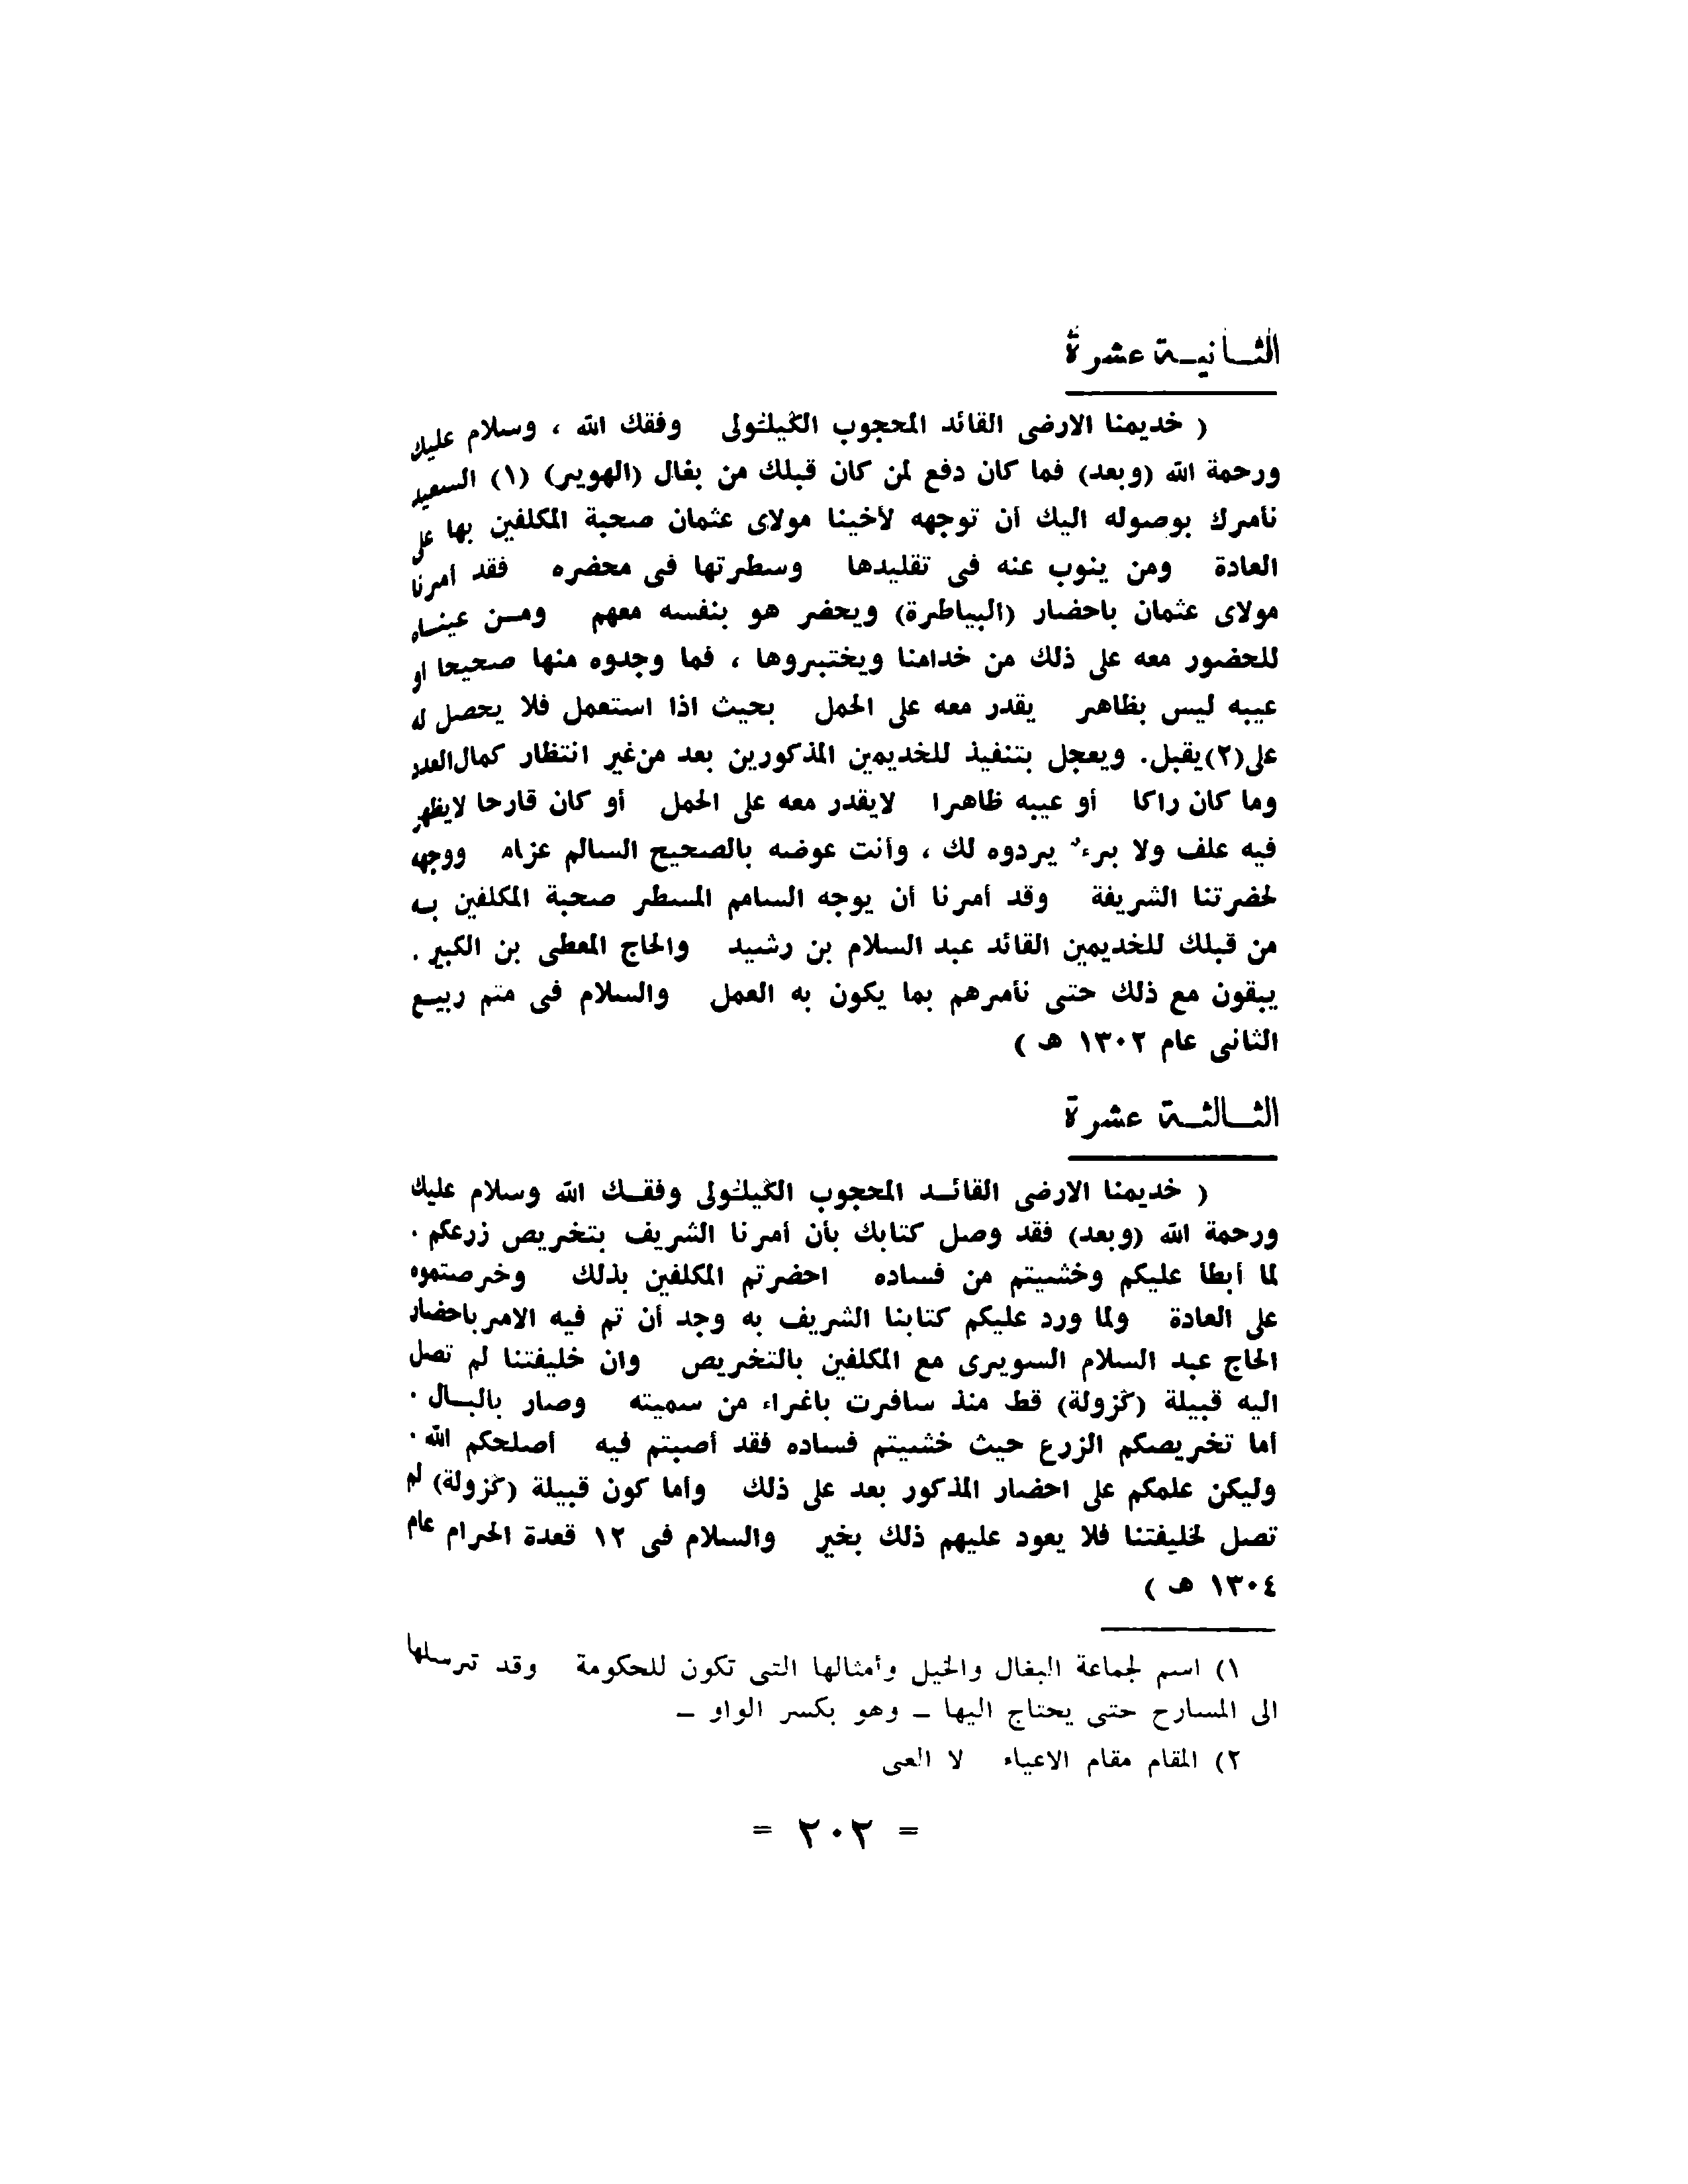 الثـانيـة عشرة
( خديمنا الارضى القائد المحجوب الكيلولى وفقك الله ، وسلام عليك
ورحمة الله (وبعد) فما كان دفع لمن كان قبلك من بغال (الهوير) (١) السعيد
نأمرك بوصوله اليك أن توجهه لأخينا مولاى عثمان صحبة المكلفين بها على
العادة ومن ينوب عنه فى تقليدها وسطرتها فى محضره فقد أمرنا
مولاى عثمان باحضار (البياطرة) ويحضر هو بنفسه معهم ومـن عينـاه
للحضور معه على ذلك من خدامنا ويختبروها ، فما وجدوه منها صحيحا او
عيبه ليس بظاهر يقدر معه على الحمل بحيث اذا استعمل فلا يحصل له
على(٢)يقبل. ويعجل بتنفيذ للخديمين المذكورين بعد من غير انتظار كمال العدد
وما كان راكا أو عيبه ظاهرا لايقدر معه على الحمل أو كان قارحا لايظهر
فيه علف ولا برءٌ يردوه لك ، وأنت عوضه بالصحيح السالم عزاه ووجهه
لحضرتنا الشريفة وقد أمرنا أن يوجه السامم المسطر صحبة المكلفين بـه
من قبلك للخديمين القائد عبد السلام بن رشيد والحاج المعطى بن الكبير .
يبقون مع ذلك حتى نأمرهم بما يكون به العمل والسلام فى متم ربيـع
الثانى عام ١٣٠٢ هـ )
الثـالثـة عشرة
( خديمنا الارضى القائـد المحجوب الكيلولى وفقـك الله وسلام عليك
ورحمة الله (وبعد) فقد وصل كتابك بأن أمرنا الشريف بتخريص زرعكم .
لما أبطأ عليكم وخشيتم من فساده احضرتم المكلفين بذلك وخرصتموه
على العادة ولما ورد عليكم كتابنا الشريف به وجد أن تم فيه الامر باحضار
الحاج عبد السلام السويرى مع المكلفين بالتخريص وان خليفتنا لم تصل
اليه قبيلة (گزولة) قط منذ سافرت باغراء من سميته وصار بالبـال .
أما تخريصكم الزرع حيث خشيتم فساده فقد أصبتم فيه أصلحكم الله .
وليكن علمكم على احضار المذكور بعد على ذلك وأما كون قبيلة (گزولة) لم
تصل لخليفتنا فلا يعود عليهم ذلك بخير والسلام فى ١٢ قعدة الحرام عام
١٣٠٤ هـ )
١) اسم لجماعة البغال والخيل وأمثالها التى تكون للحكومة وقد ترسلها
الى المسارح حتى يحتاج اليها ـ وهو بكسر الواو ـ
٢) المقام مقام الاعياء لا العى
= ٢٠٢ =